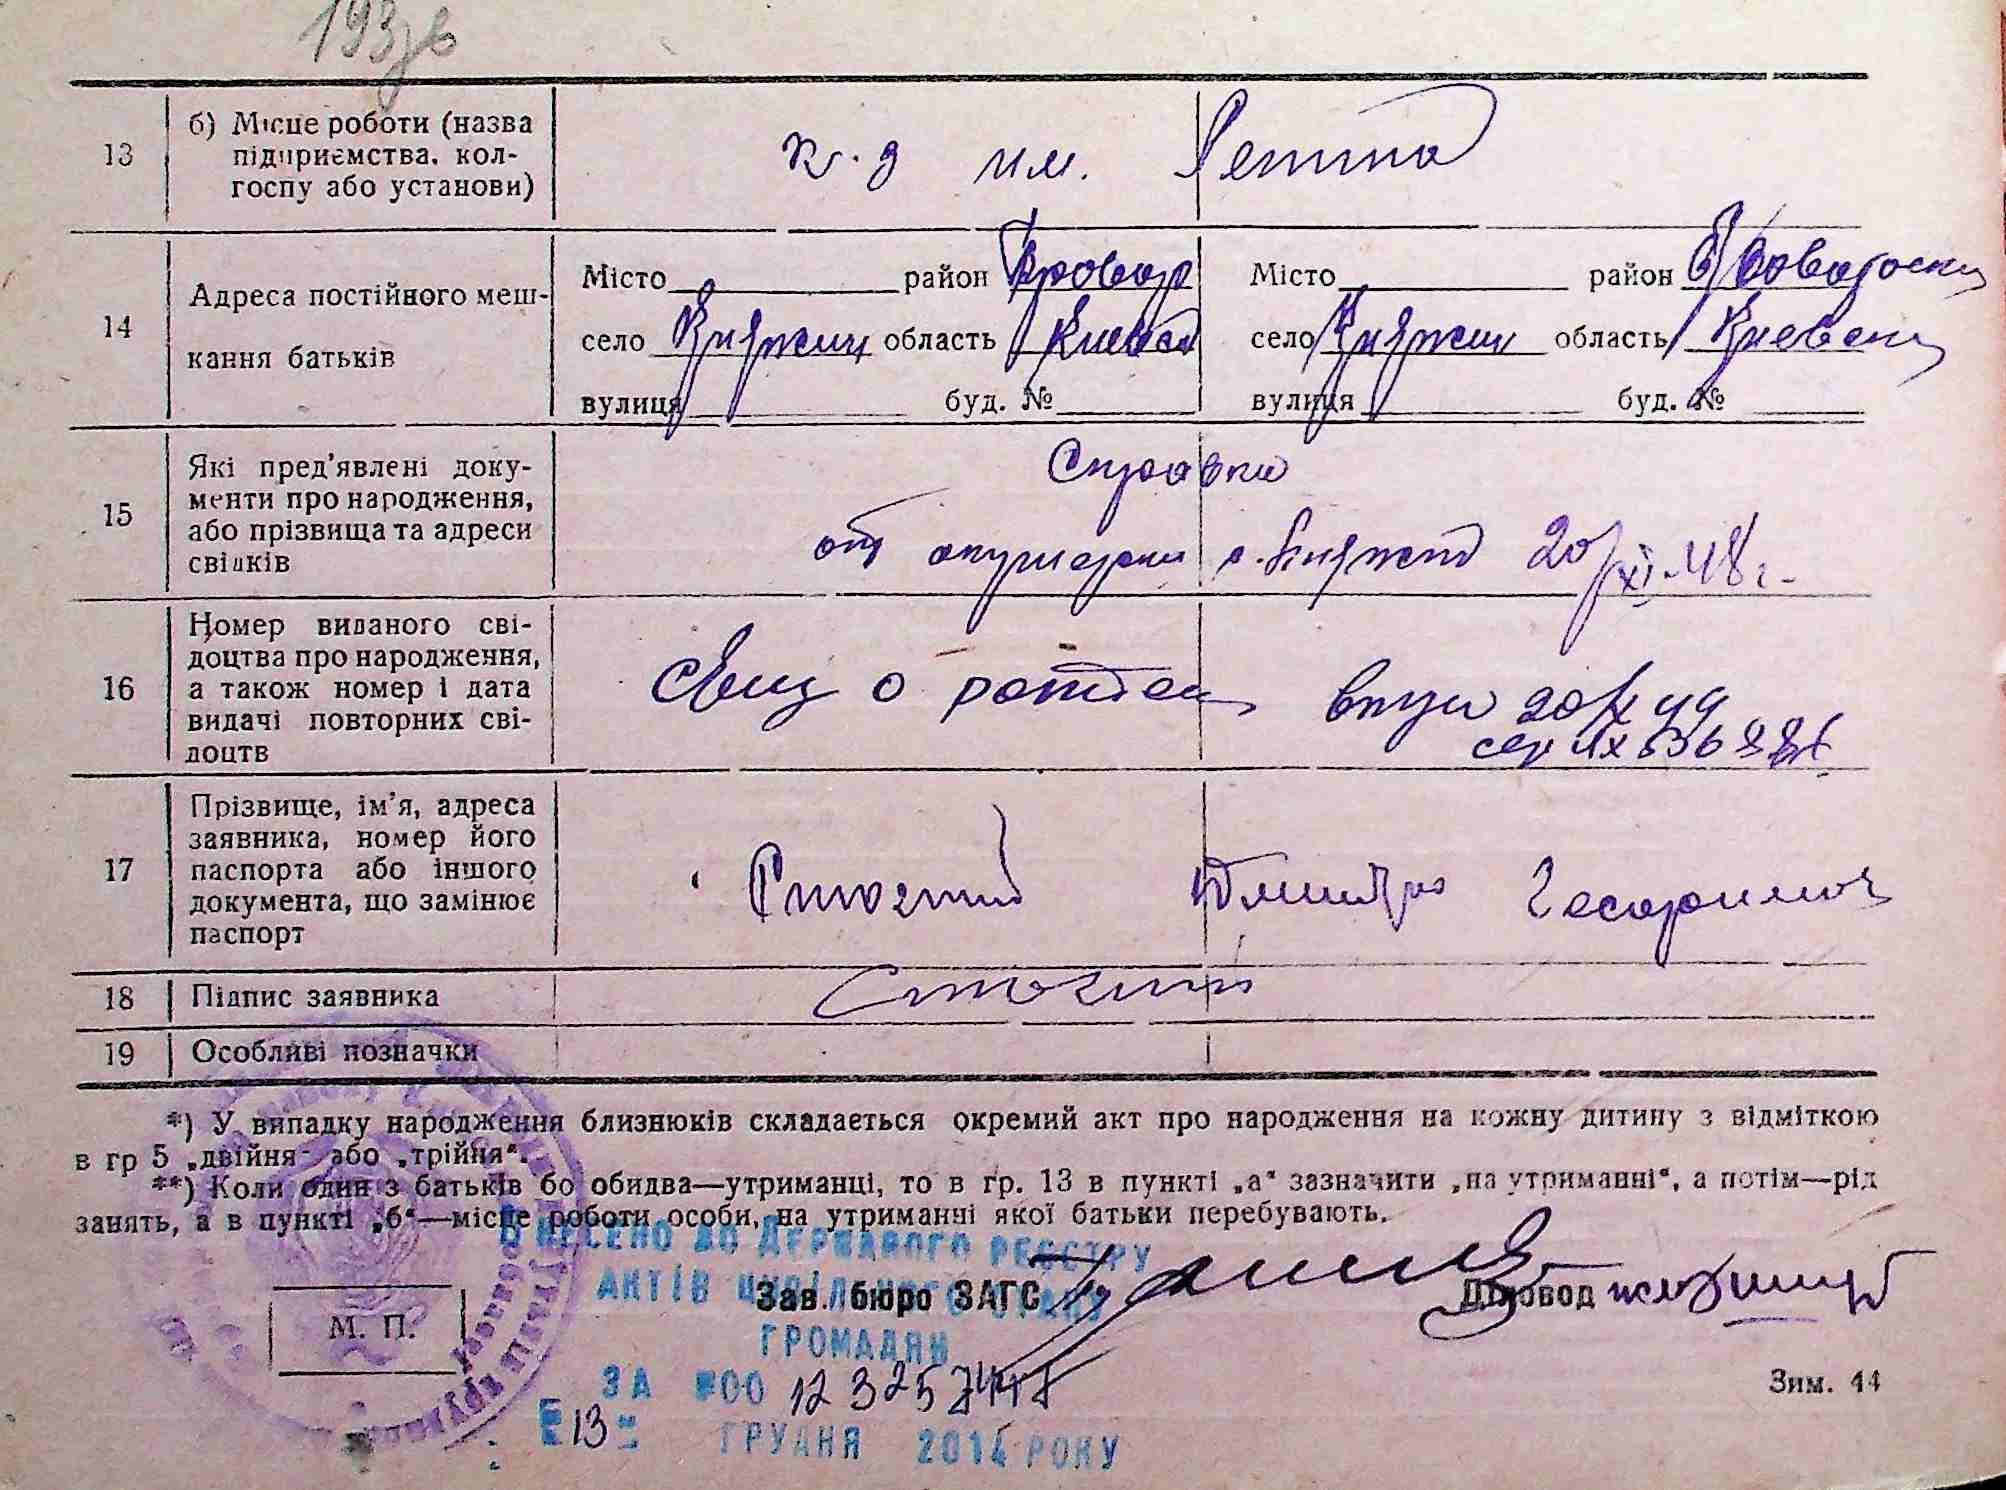 193зв
13
б) Місце роботи (назва
підприємства, кол-
госпу або установи)
к-з им. Ленина
14
Адреса постійного меш-
кання батьків
Місто район Бровар
село Княжичи область Киевск
вулиця буд. №
Місто район Броварски
село Княжичи область Киевски
вулиця буд. №
15
Які пред'явлені доку-
менти про народження,
або прізвища та адреси
свідків
Справка
от акушерки с. Княжичи 20/XI-48 г.
16
Номер виданого сві-
доцтва про народження,
а також номер і дата
видачі повторних сві-
доцтв
о рожден 20/X
17
Прізвище, ім'я, адреса
заявника, номер його
паспорта або іншого
документа, що замінює
паспорт
Дмитро
18
Підпис заявника
19
Особливі позначки
*) У випадку народження близнюків складається окремий акт про народження на кожну дитину з відміткою
в гр 5 „двійня“ або „трійня“.
**) Коли один з батьків бо обидва—утриманці, то в гр. 13 в пункті „а“ зазначити „на утриманні“, а потім—рід
занять, а в пункті „б“—місце роботи особи, на утриманні якої батьки перебувають.
ВНЕСЕНО ДО ДЕРЖАВНОГО РЕЄСТРУ
АКТІВ ЦИВІЛЬНОГО СТАНУ
ГРОМАДЯН
Зав. бюро ЗАГС
Діловод
М. П.
ЗА №00
"13" ГРУДНЯ 2014 РОКУ
Зим. 44